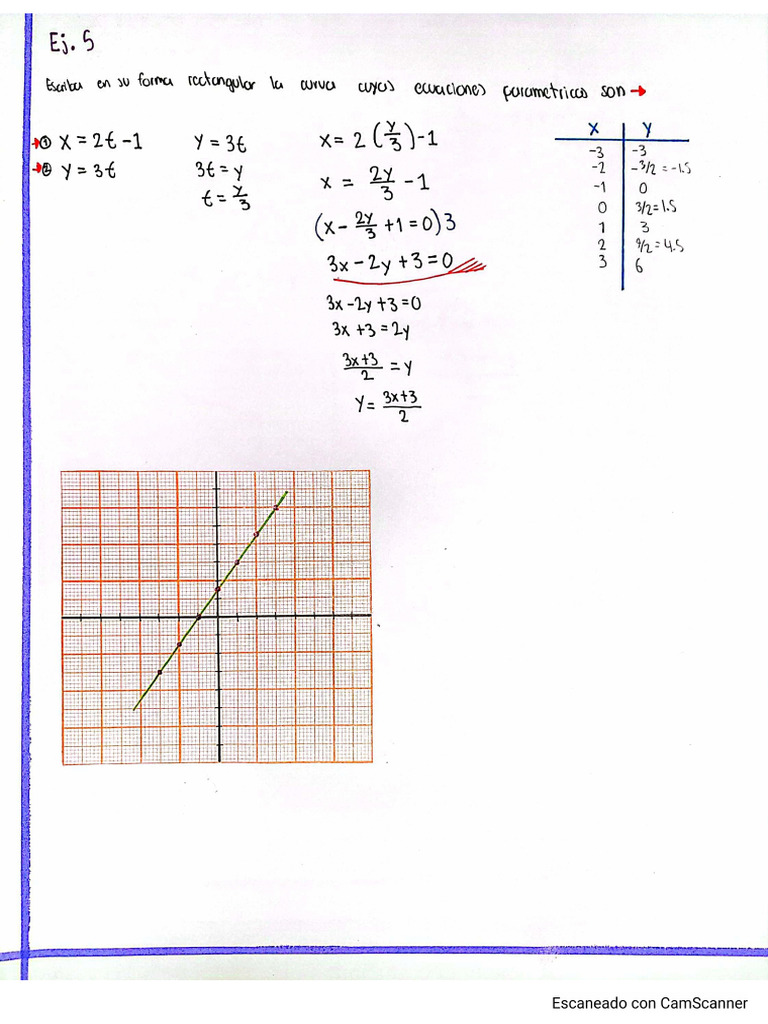 Ej. 5
Escriba en su forma rectangular la curva cuyas ecuaciones parametricas son →
→① x = 2t - 1
→② y = 3t
y = 3t
3t = y
t = y/3
x = 2 (y/3) - 1
x = 2y/3 - 1
(x - 2y/3 + 1 = 0) 3
3x - 2y + 3 = 0
3x - 2y + 3 = 0
3x + 3 = 2y
3x+3/2 = y
y = 3x+3/2
x | y
-3 | -3
-2 | -3/2 = -1.5
-1 | 0
0 | 3/2 = 1.5
1 | 3
2 | 9/2 = 4.5
3 | 6
Escaneado con CamScanner